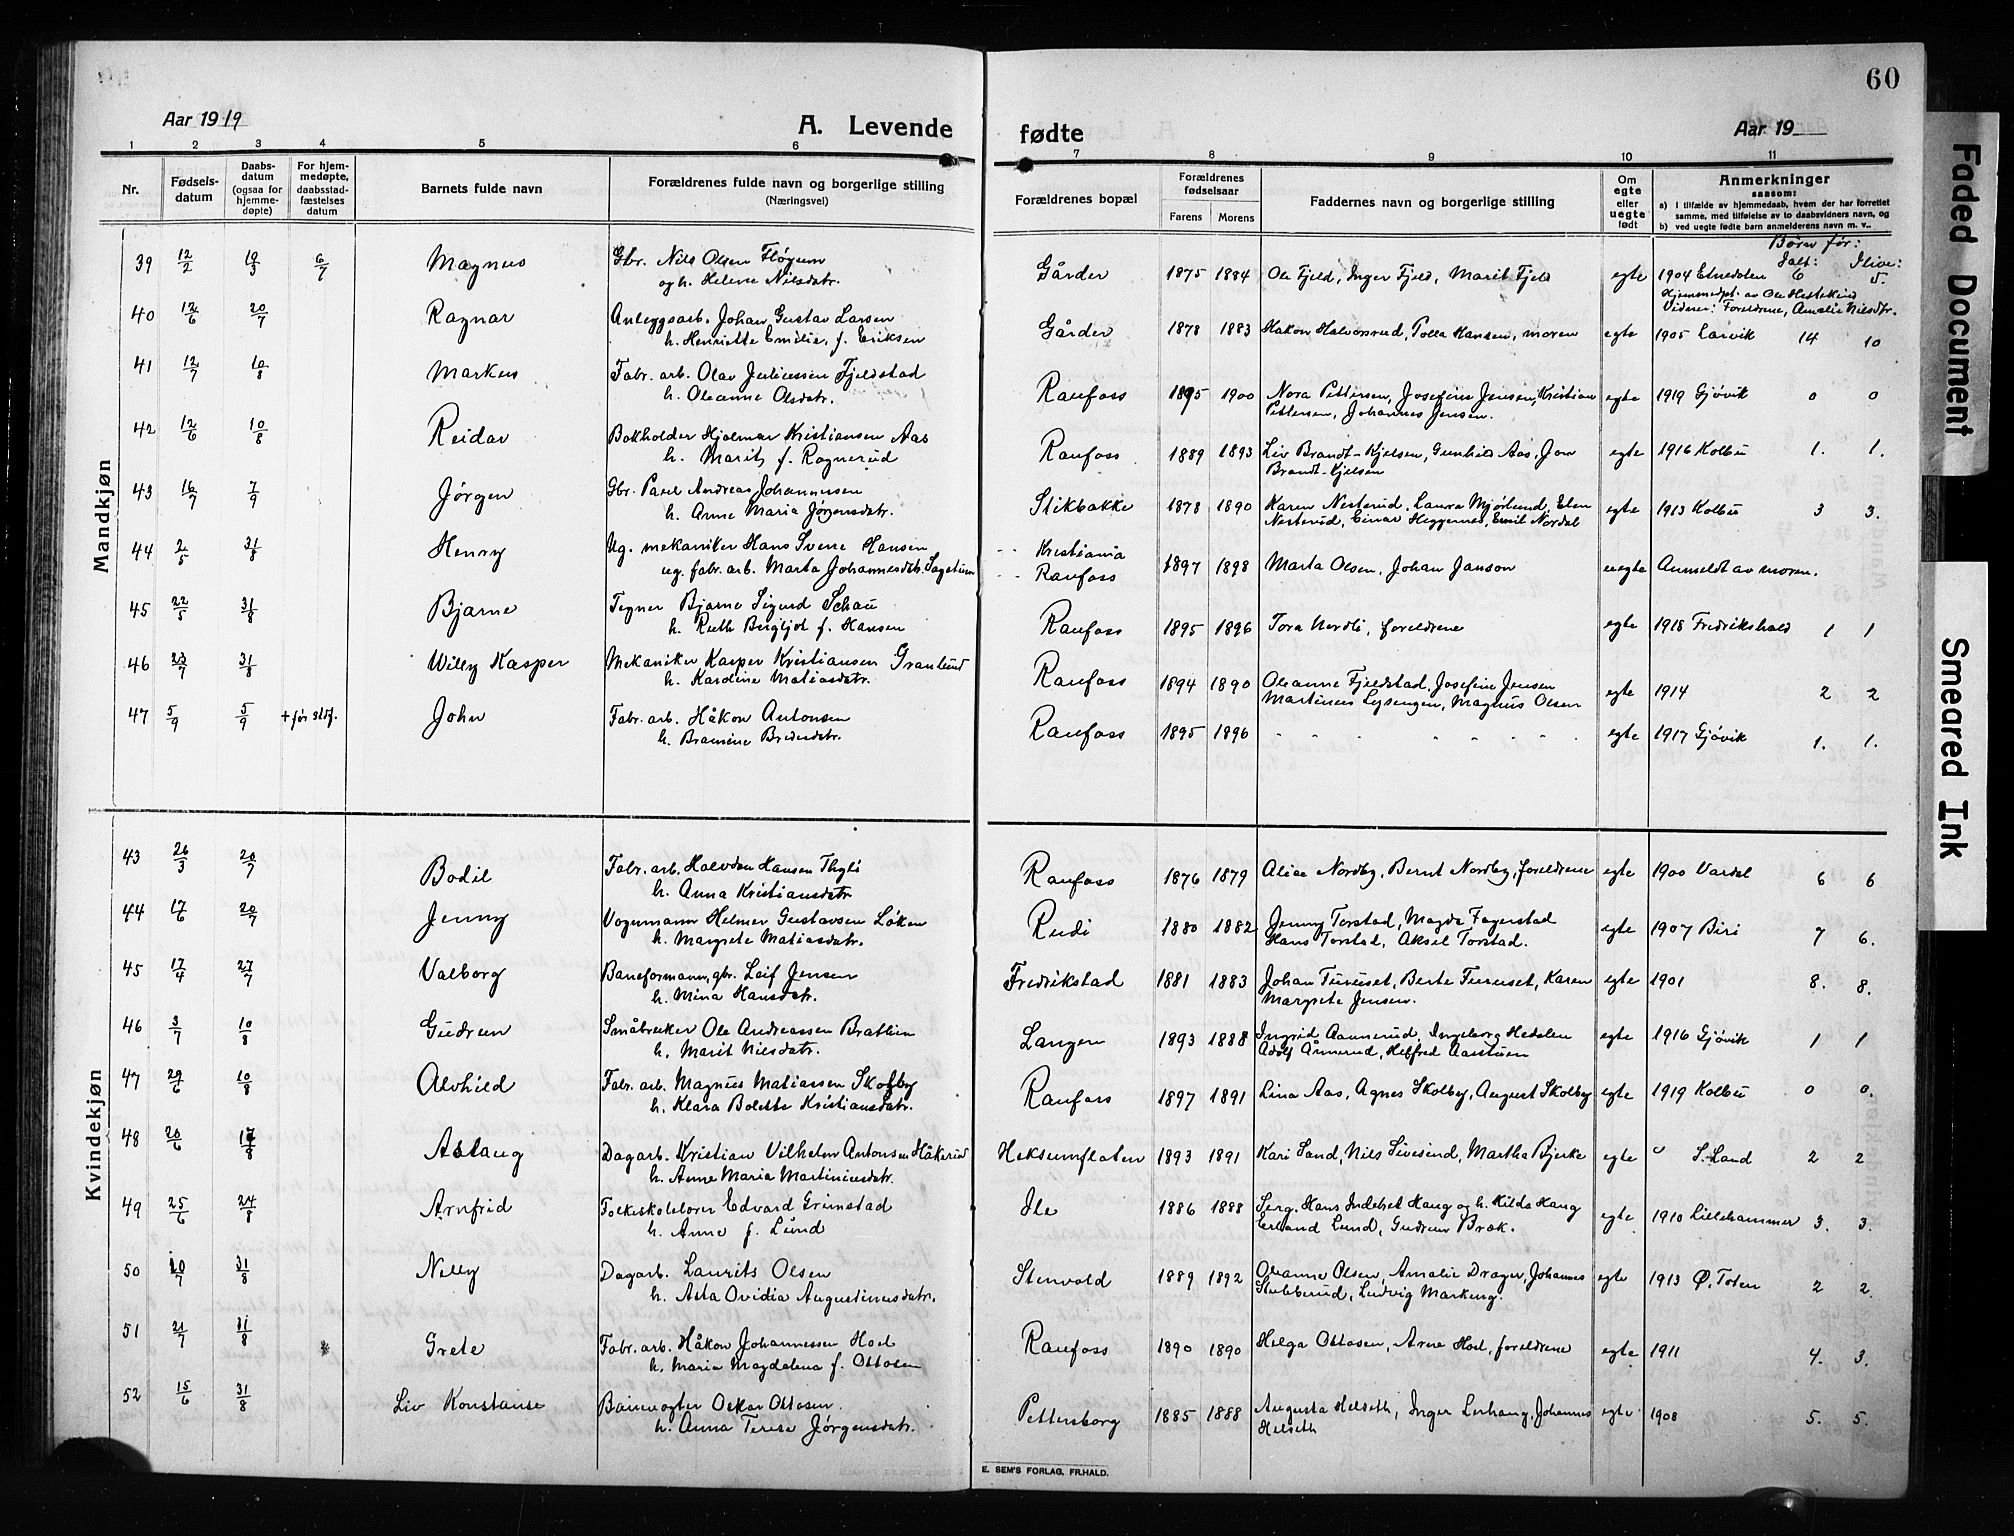 60
Aar 1919
A. Levende fødte
Aar 19
1 2 3 4 5 6 7 8 9 10 11
Nr.
Fødsels-
datum
Daabs-
datum
(ogsaa for
hjemme-
døpte)
For hjem-
medøpte,
daabsstad-
fæstelses
datum
Barnets fulde navn
Forældrenes fulde navn og borgerlige stilling
(Næringsvei)
Forældrenes bopæl
Forældrenes
fødselsaar
Farens Morens
Faddernes navn og borgerlige stilling
Om
egte
eller
uegte
født
Anmerkninger
saasom:
a) I tilfælde av hjemmedaab, hvem der har forrettet
samme, med tilføielse av to daabsvidners navn, og
b) ved uegte fødte barn anmelderens navn m. v..
Børn før:
Ialt: Ilive:
Mandkjøn
39 12/2 19/3 6/7 Magnus Gbr. Nils Olsen Fløgum Gårder 1875 1884 Ole Fjeld, Inger Fjeld, Marit Fjeld egte 1904 Etnedalen 6 5.
og h. Helene Nilsdatr.
Hjemmedpt. av Ole Hestekind
Vidner: Foreldrene, Amalie Nilsdtr.
40 12/6 20/7 Ragnar Anleggsarb. Johan Gustav Larsen Gårder 1878 1883 Hakon Halvorsrud, Polla Hansen, moren egte 1905 Larvik 14 10
h. Henriette Emilie, f. Eriksen
41 12/7 10/8 Markus Fabr. arb. Olav Juliussen Fjeldstad Raufoss 1895 1900 Nora Pettersen, Josefine Jensen, Kristian egte 1919 Gjøvik 0 0
h. Oleanne Olsdatr. Pettersen, Johannes Jensen.
42 12/6 10/8 Reidar Bokholder Hjalmar Kristiansen Aas Raufoss 1889 1893 Liv Brandt-Kjelsen, Gunhild Aas, Jon egte 1916 Kolbu 1. 1.
h. Marit, f. Ragnerud Brandt-Kjelsen
43 16/7 7/9 Jørgen Gbr. Paul Andreas Johannesen Stikbakke 1878 1890 Karen Nesterud, Laura Mjørlund, Elen egte 1913 Kolbu 3 3.
h. Anne Maria Jørgensdatr. Nesterud, Einar Heggernes, Emil Nordal
44 2/5 31/8 Henry Ug. mekaniker Hans Sverre Hansen Kristiania
ug. fabr. arb. Marta Johannesdtr. Sagstuen Raufoss 1897 1898 Marta Olsen, Johan Janson uegte Anmeldt av moren.
45 22/5 31/8 Bjarne Tegner Bjarne Sigurd Schau Raufoss 1895 1896 Tora Nordli, foreldrene egte 1918 Fredrikshald 1 1
h. Ruth Bergljot f. Hansen
46 23/7 31/8 Willy Kasper Mekaniker Kasper Kristiansen Granlund Raufoss 1894 1890 Oleanne Fjeldstad, Josefine Jensen egte 1914 2 2
h. Karoline Matiasdatr. Martinius Lysengen, Magnus Olsen
47 5/9 5/9 + før stdf. John Fabr. arb. Håkon Antonsen Raufoss 1895 1896 " " " " " " " egte 1917 Gjøvik 1. 1.
h. Bramine Bredesdatr.
Kvindekjøn
43 26/3 20/7 Bodil Fabr. arb. Halvdan Hansen Thyli Raufoss 1876 1879 Alice Nordby, Bernt Nordby, foreldrene egte 1900 Vardal 6 6
h. Anna Kristiansdatr
44 17/6 20/7 Jenny Vognmann Helmer Gustavsen Løken Rudi 1880 1882 Jenny Torstad, Magda Fagerstad egte 1907 Biri 7 6.
h. Margrete Matiasdatr. Hans Torstad, Aksel Torstad.
45 17/4 27/7 Valborg Baneformann, gbr. Leif Jensen Fredrikstad 1881 1883 Johan Turuset, Berte Turuset, Karen egte 1901 8. 8.
h. Mina Hansdatr. Margrete Jensen.
46 3/7 10/8 Gudrun Småbruker Ole Andreassen Bratlien Langen 1893 1888 Ingrid Aannerud, Ingeborg Hedalen egte 1916 Gjøvik 1 1
h. Marit Nilsdatr. Adolf Ånnerud, Helfred Aastuen
47 29/6 10/8 Alvhild Fabr. arb. Magnus Matiassen Skolby Raufoss 1897 1891 Lina Aas, Agnes Skolby, August Skolby egte 1919 Kolbu 0 0.
h. Klara Bolette Kristiansdatr.
48 20/6 17/8 Aslaug Dagarb. Kristian Vilhelm Antonsen Håkerud Heksumflaten 1893 1891 Kari Sand, Nils Livesind, Martha Bjerke egte " S. Land 2 2
h. Anne Maria Martiniusdatr.
49 25/6 24/8 Arnfrid Folkeskolelærer Edvard Grimstad Ile 1886 1888 Serg. Hans Indehel Haug og h. Hilda Haug egte 1910 Lillehammer 3. 3.
h. Anne f. Lund Erland Lund, Gudrun Bræk.
50 20/7 31/8 Nelly Dagarb. Laurits Olsen Stenvold 1889 1892 Oleanne Olsen, Amalie Drager, Johannes egte 1913 Ø. Toten 2 2.
h. Asta Ovidia Augustinusdatr. Stubberud, Ludvig Markeng.
51 21/7 31/8 Grete Fabr. arb. Håkon Johannessen Hoel Raufoss 1890 1890 Helga Ottosen, Arne Hoel, foreldrene egte 1911 4. 3.
h. Maria Magdalena f. Ottosen
52 15/6 31/8 Liv Konstanse Banevogter Oskar Ottosen Pettersborg 1885 1888 Augusta Helseth, Inger Lerhaug, Johannes egte 1908 5. 5.
h. Anna Terese Jørgensdatr. Helseth
E. SEM'S FORLAG, FR.HALD.
Faded Document
Smeared Ink